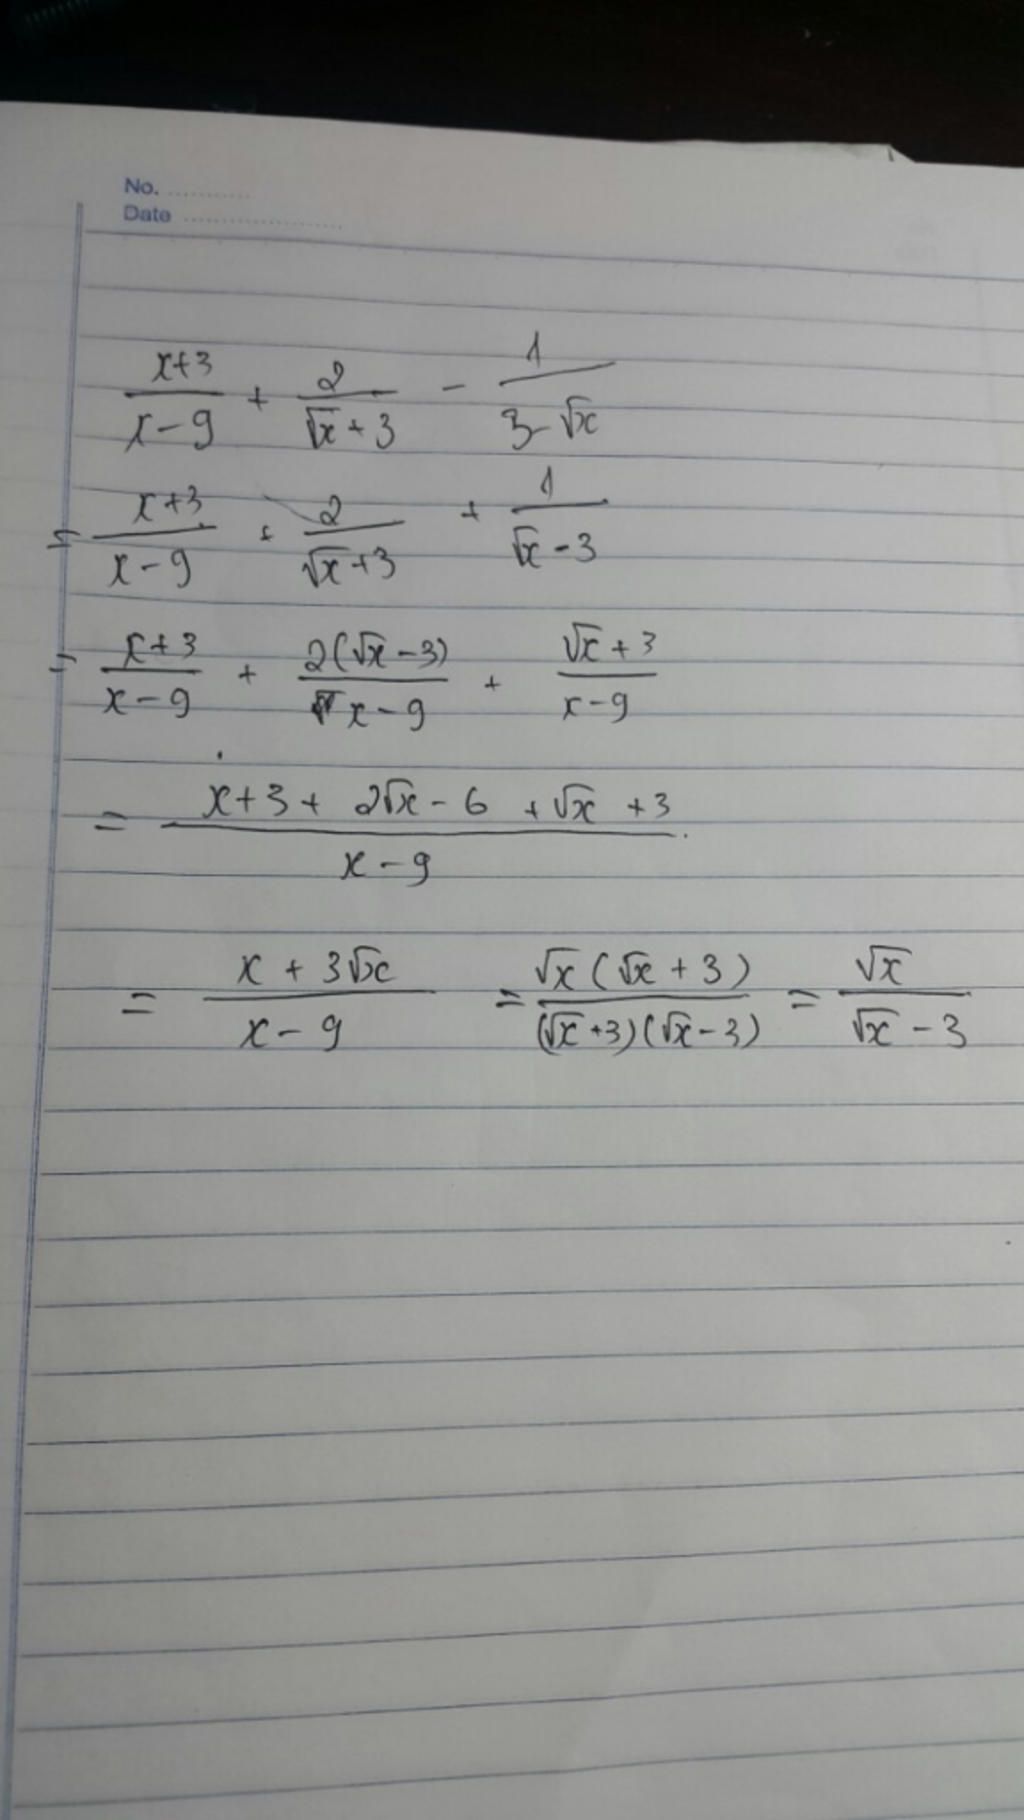 No. ...........
Date ......................
\frac{x+3}{x-9} + \frac{2}{\sqrt{x}+3} - \frac{1}{3-\sqrt{x}}
= \frac{x+3}{x-9} + \frac{2}{\sqrt{x}+3} + \frac{1}{\sqrt{x}-3}
= \frac{x+3}{x-9} + \frac{2(\sqrt{x}-3)}{x-9} + \frac{\sqrt{x}+3}{x-9}
= \frac{x+3+2\sqrt{x}-6+\sqrt{x}+3}{x-9}
= \frac{x+3\sqrt{x}}{x-9} = \frac{\sqrt{x}(\sqrt{x}+3)}{(\sqrt{x}+3)(\sqrt{x}-3)} = \frac{\sqrt{x}}{\sqrt{x}-3}